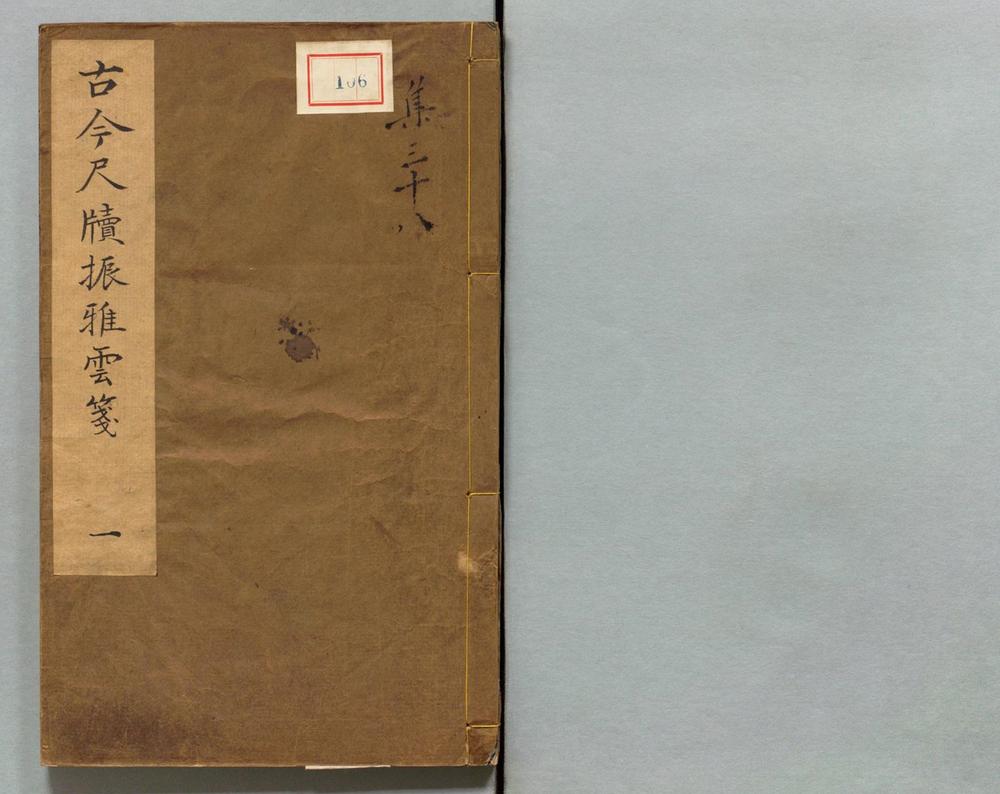 集三十八
106
古今尺牘振雅雲箋 一